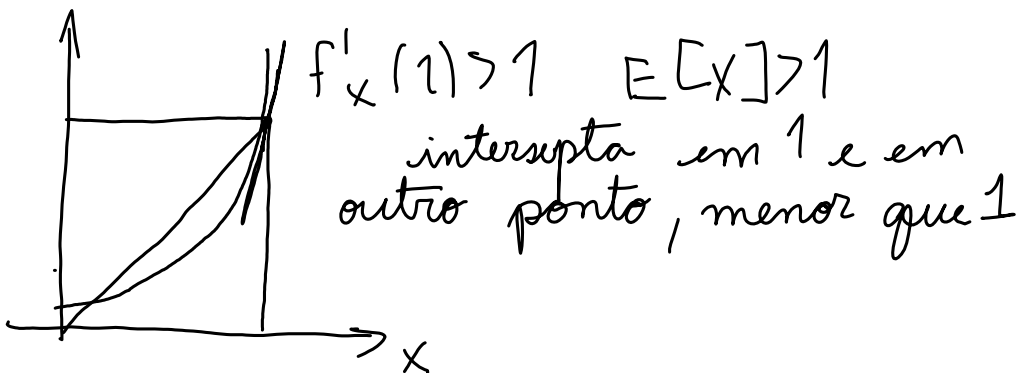 f'x(1)>1 E[X]>1
intersepta em 1 e em
outro ponto, menor que 1
x